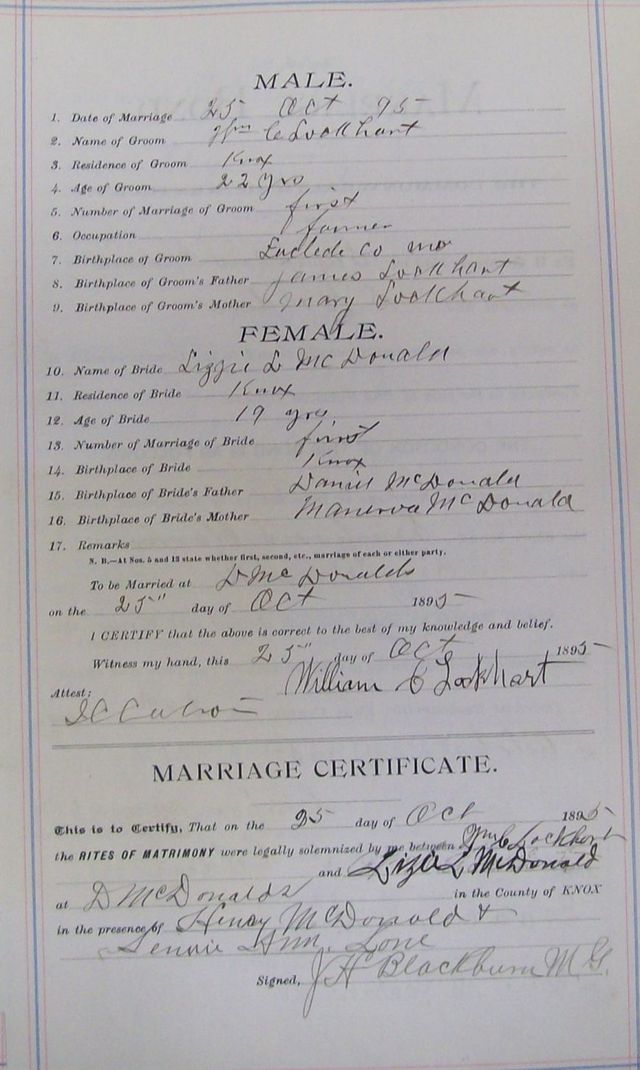 MALE.
1. Date of Marriage 25 Oct 95
2. Name of Groom Wm C Lockhart
3. Residence of Groom Knox
4. Age of Groom 22 yrs
5. Number of Marriage of Groom first
6. Occupation farmer
7. Birthplace of Groom Laclede Co Mo
8. Birthplace of Groom's Father James Lockhart
9. Birthplace of Groom's Mother Mary Lockhart
FEMALE.
10. Name of Bride Lizzie L McDonald
11. Residence of Bride Knox
12. Age of Bride 19 yrs
13. Number of Marriage of Bride first
14. Birthplace of Bride Knox
15. Birthplace of Bride's Father Daniel McDonald
16. Birthplace of Bride's Mother Manerva McDonald
17. Remarks
N. B.—At Nos. 5 and 13 state whether first, second, etc., marriage of each or either party.
To be Married at D McDonalds
on the 25" day of Oct 1895
I CERTIFY that the above is correct to the best of my knowledge and belief.
Witness my hand, this 25" day of Oct 1895
William C Lockhart
Attest:
MARRIAGE CERTIFICATE.
This is to Certify, That on the 25 day of Oct 1895
the RITES OF MATRIMONY were legally solemnized by me between Wm C Lockhart
and Lizzie L McDonald
at D McDonalds in the County of KNOX
in the presence of Henry McDonald &
Signed, J H Blackburn M G.